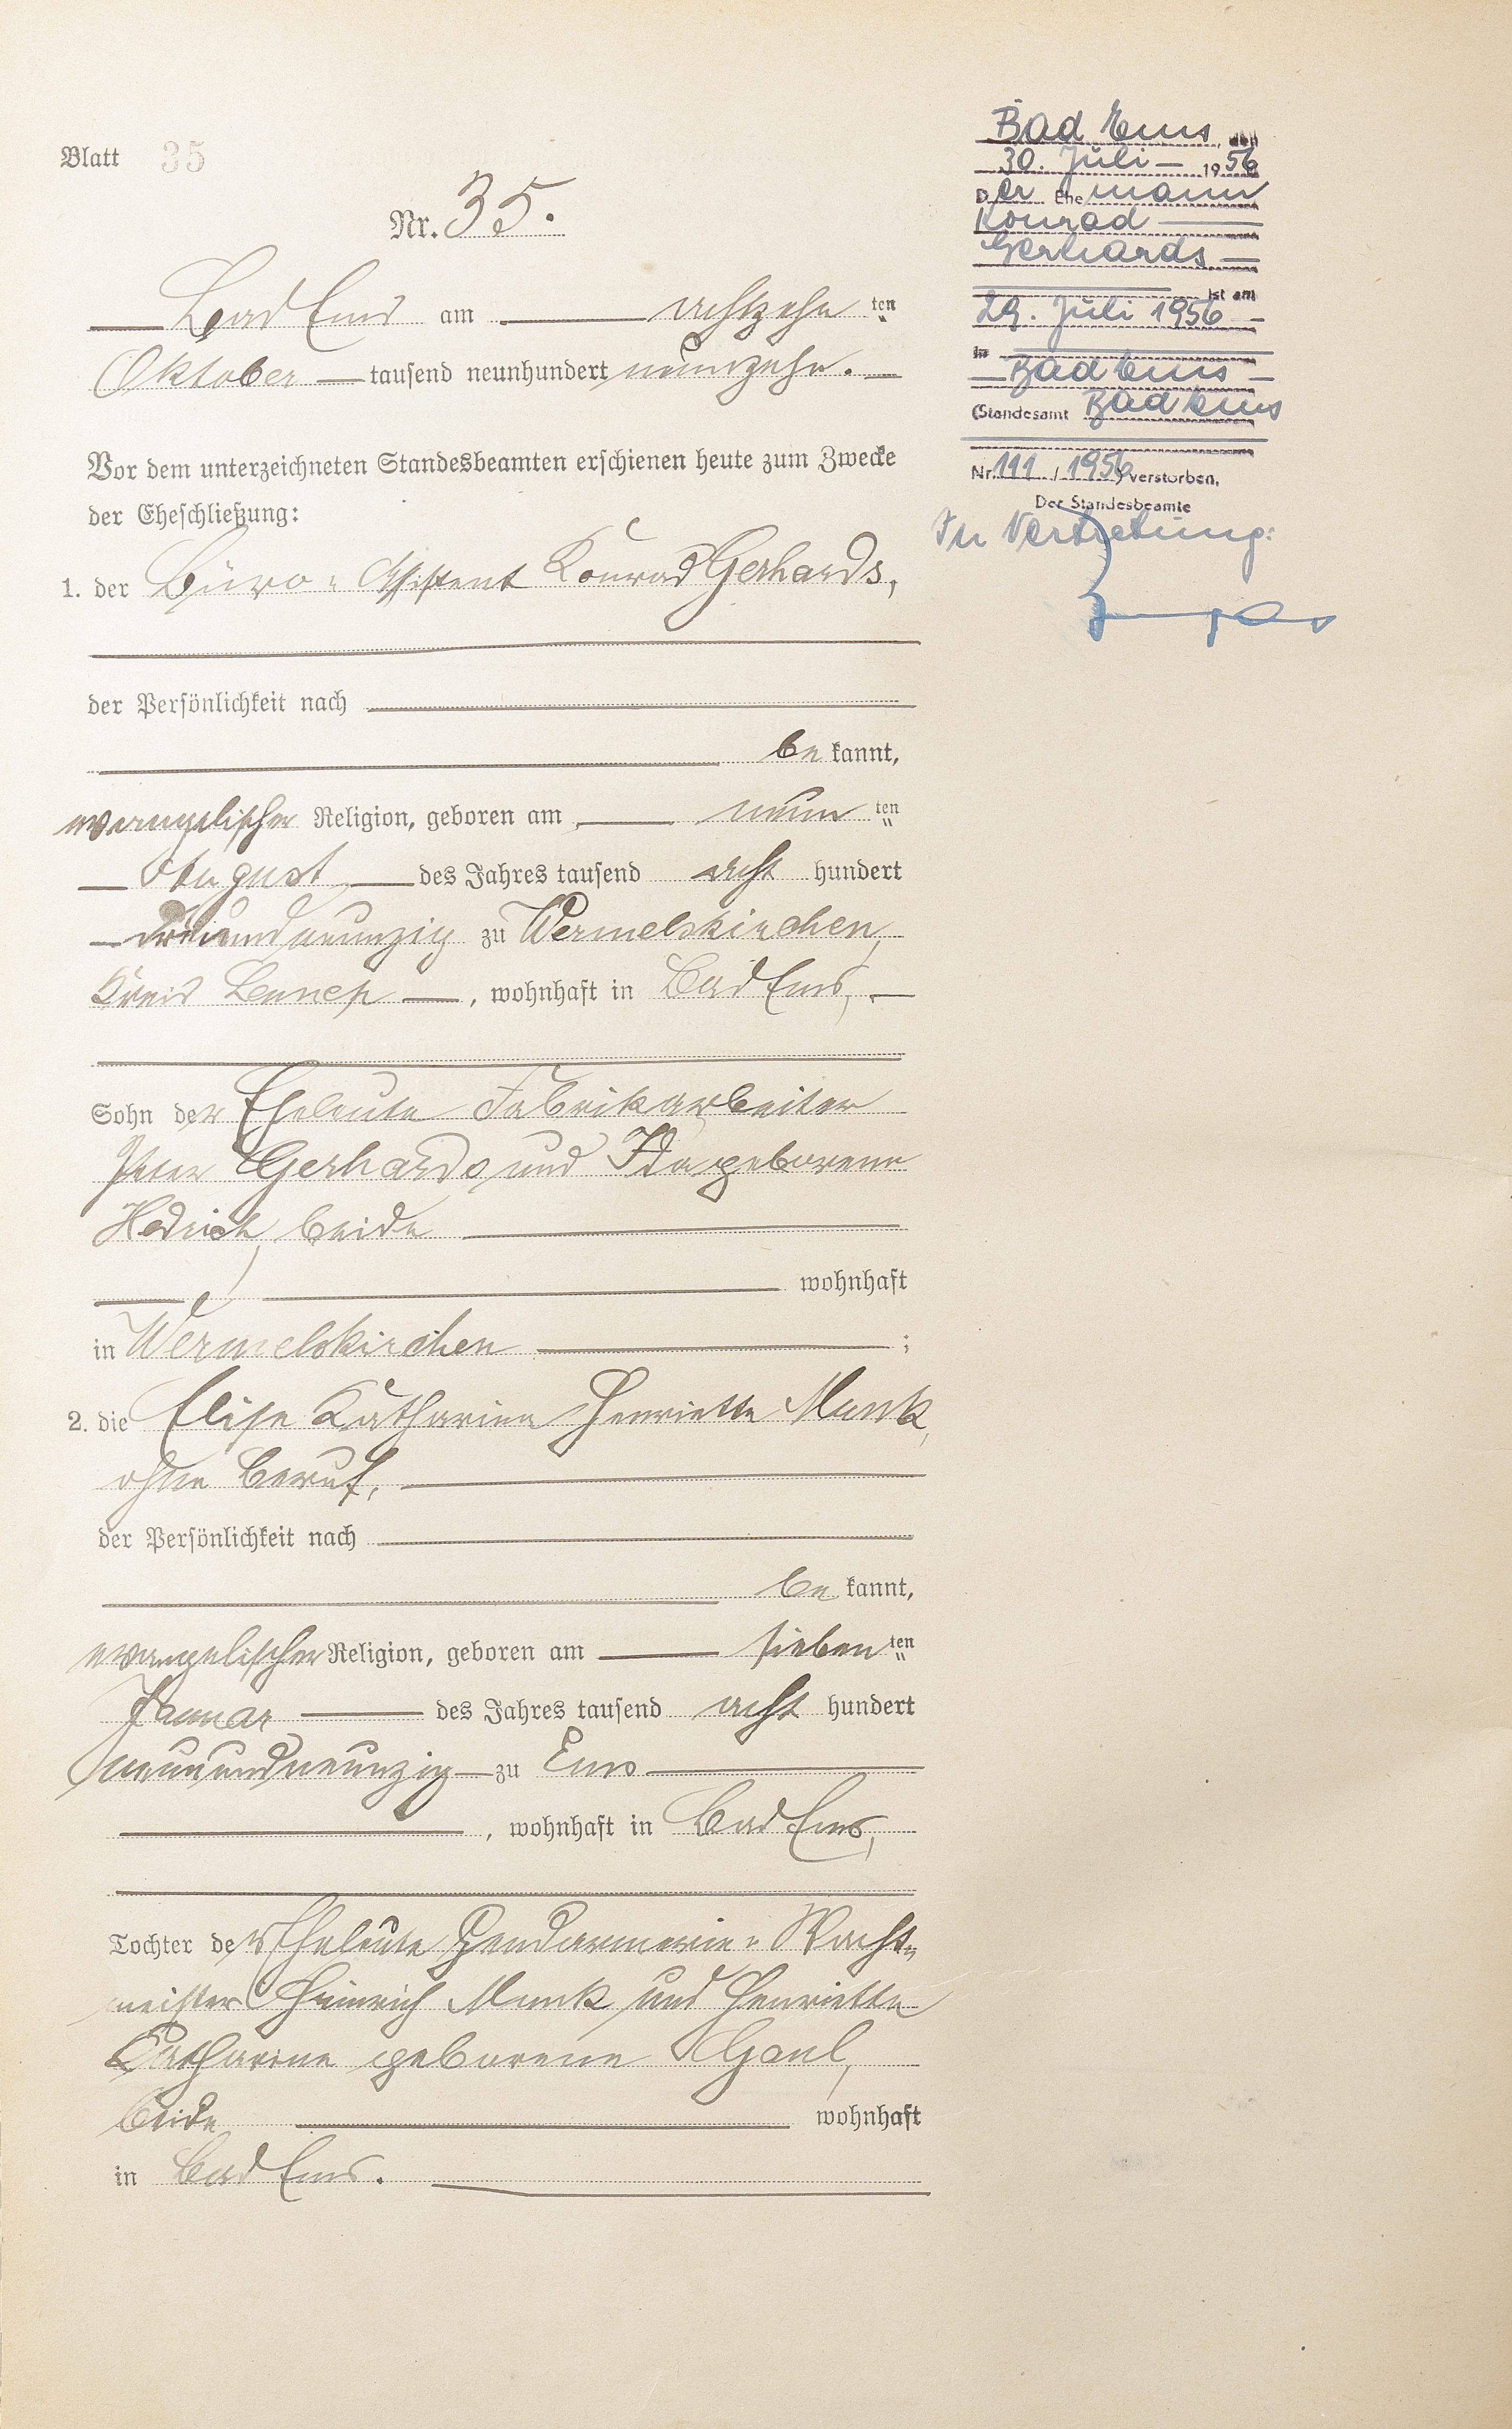 Blatt 35
Nr. 35.
Bad Ems am achtzehn ten
Oktober tausend neunhundert neunzehn.
Vor dem unterzeichneten Standesbeamten erschienen heute zum Zwecke
der Eheschließung:
1. der Büro-Assistent Konrad Gerhards,
der Persönlichkeit nach
be kannt,
evangelischer Religion, geboren am neun ten
August des Jahres tausend acht hundert
dreiundneunzig zu Wermelskirchen,
Kreis Lennep, wohnhaft in Bad Ems,
Sohn der Eheleute Fabrikarbeiter
Peter Gerhards und Ida geborene
Hedrich, beide
wohnhaft
in Wermelskirchen ;
2. die Elise Katharina Henriette Munk,
ohne Beruf,
der Persönlichkeit nach
be kannt,
evangelischer Religion, geboren am sieben ten
Januar des Jahres tausend acht hundert
neunundneunzig zu Ems
, wohnhaft in Bad Ems,
Tochter der Eheleute Gendarmerie-Wacht-
meister Heinrich Munk und Henriette
Katharine geborene Gaul,
beide wohnhaft
in Bad Ems.
Bad Ems, den
30. Juli 1956
Der Ehemann
Konrad
Gerhards
ist am
29. Juli 1956
in
Bad Ems
(Standesamt Bad Ems
Nr. 111 / 1956) verstorben.
Der Standesbeamte
In Vertretung: